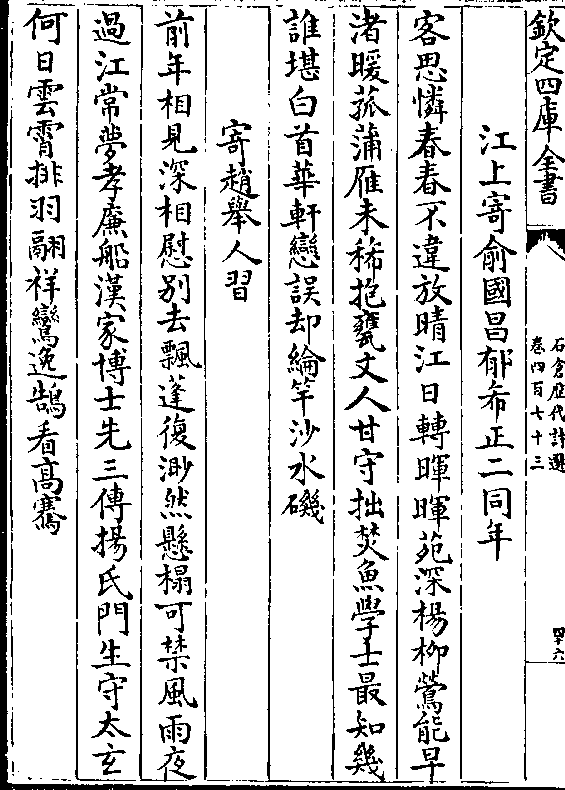 欽定四庫全書
石倉歷代詩選
卷四百七十三
四十六
江上寄俞國昌郁希正二同年
客思憐春春不違放晴江日轉暉暉苑深楊柳鶯能早
渚暖菰蒲雁未稀抱甕丈人甘守拙焚魚學士最知幾
誰堪白首華軒戀誤却綸竿沙水磯
寄趙舉人習
前年相見深相慰别去飄蓬復渺然懸榻可禁風雨夜
過江常夢孝廉船漢家博士先三傳揚氏門生守太玄
何日雲霄排羽翮祥鸞逸鵠看高騫